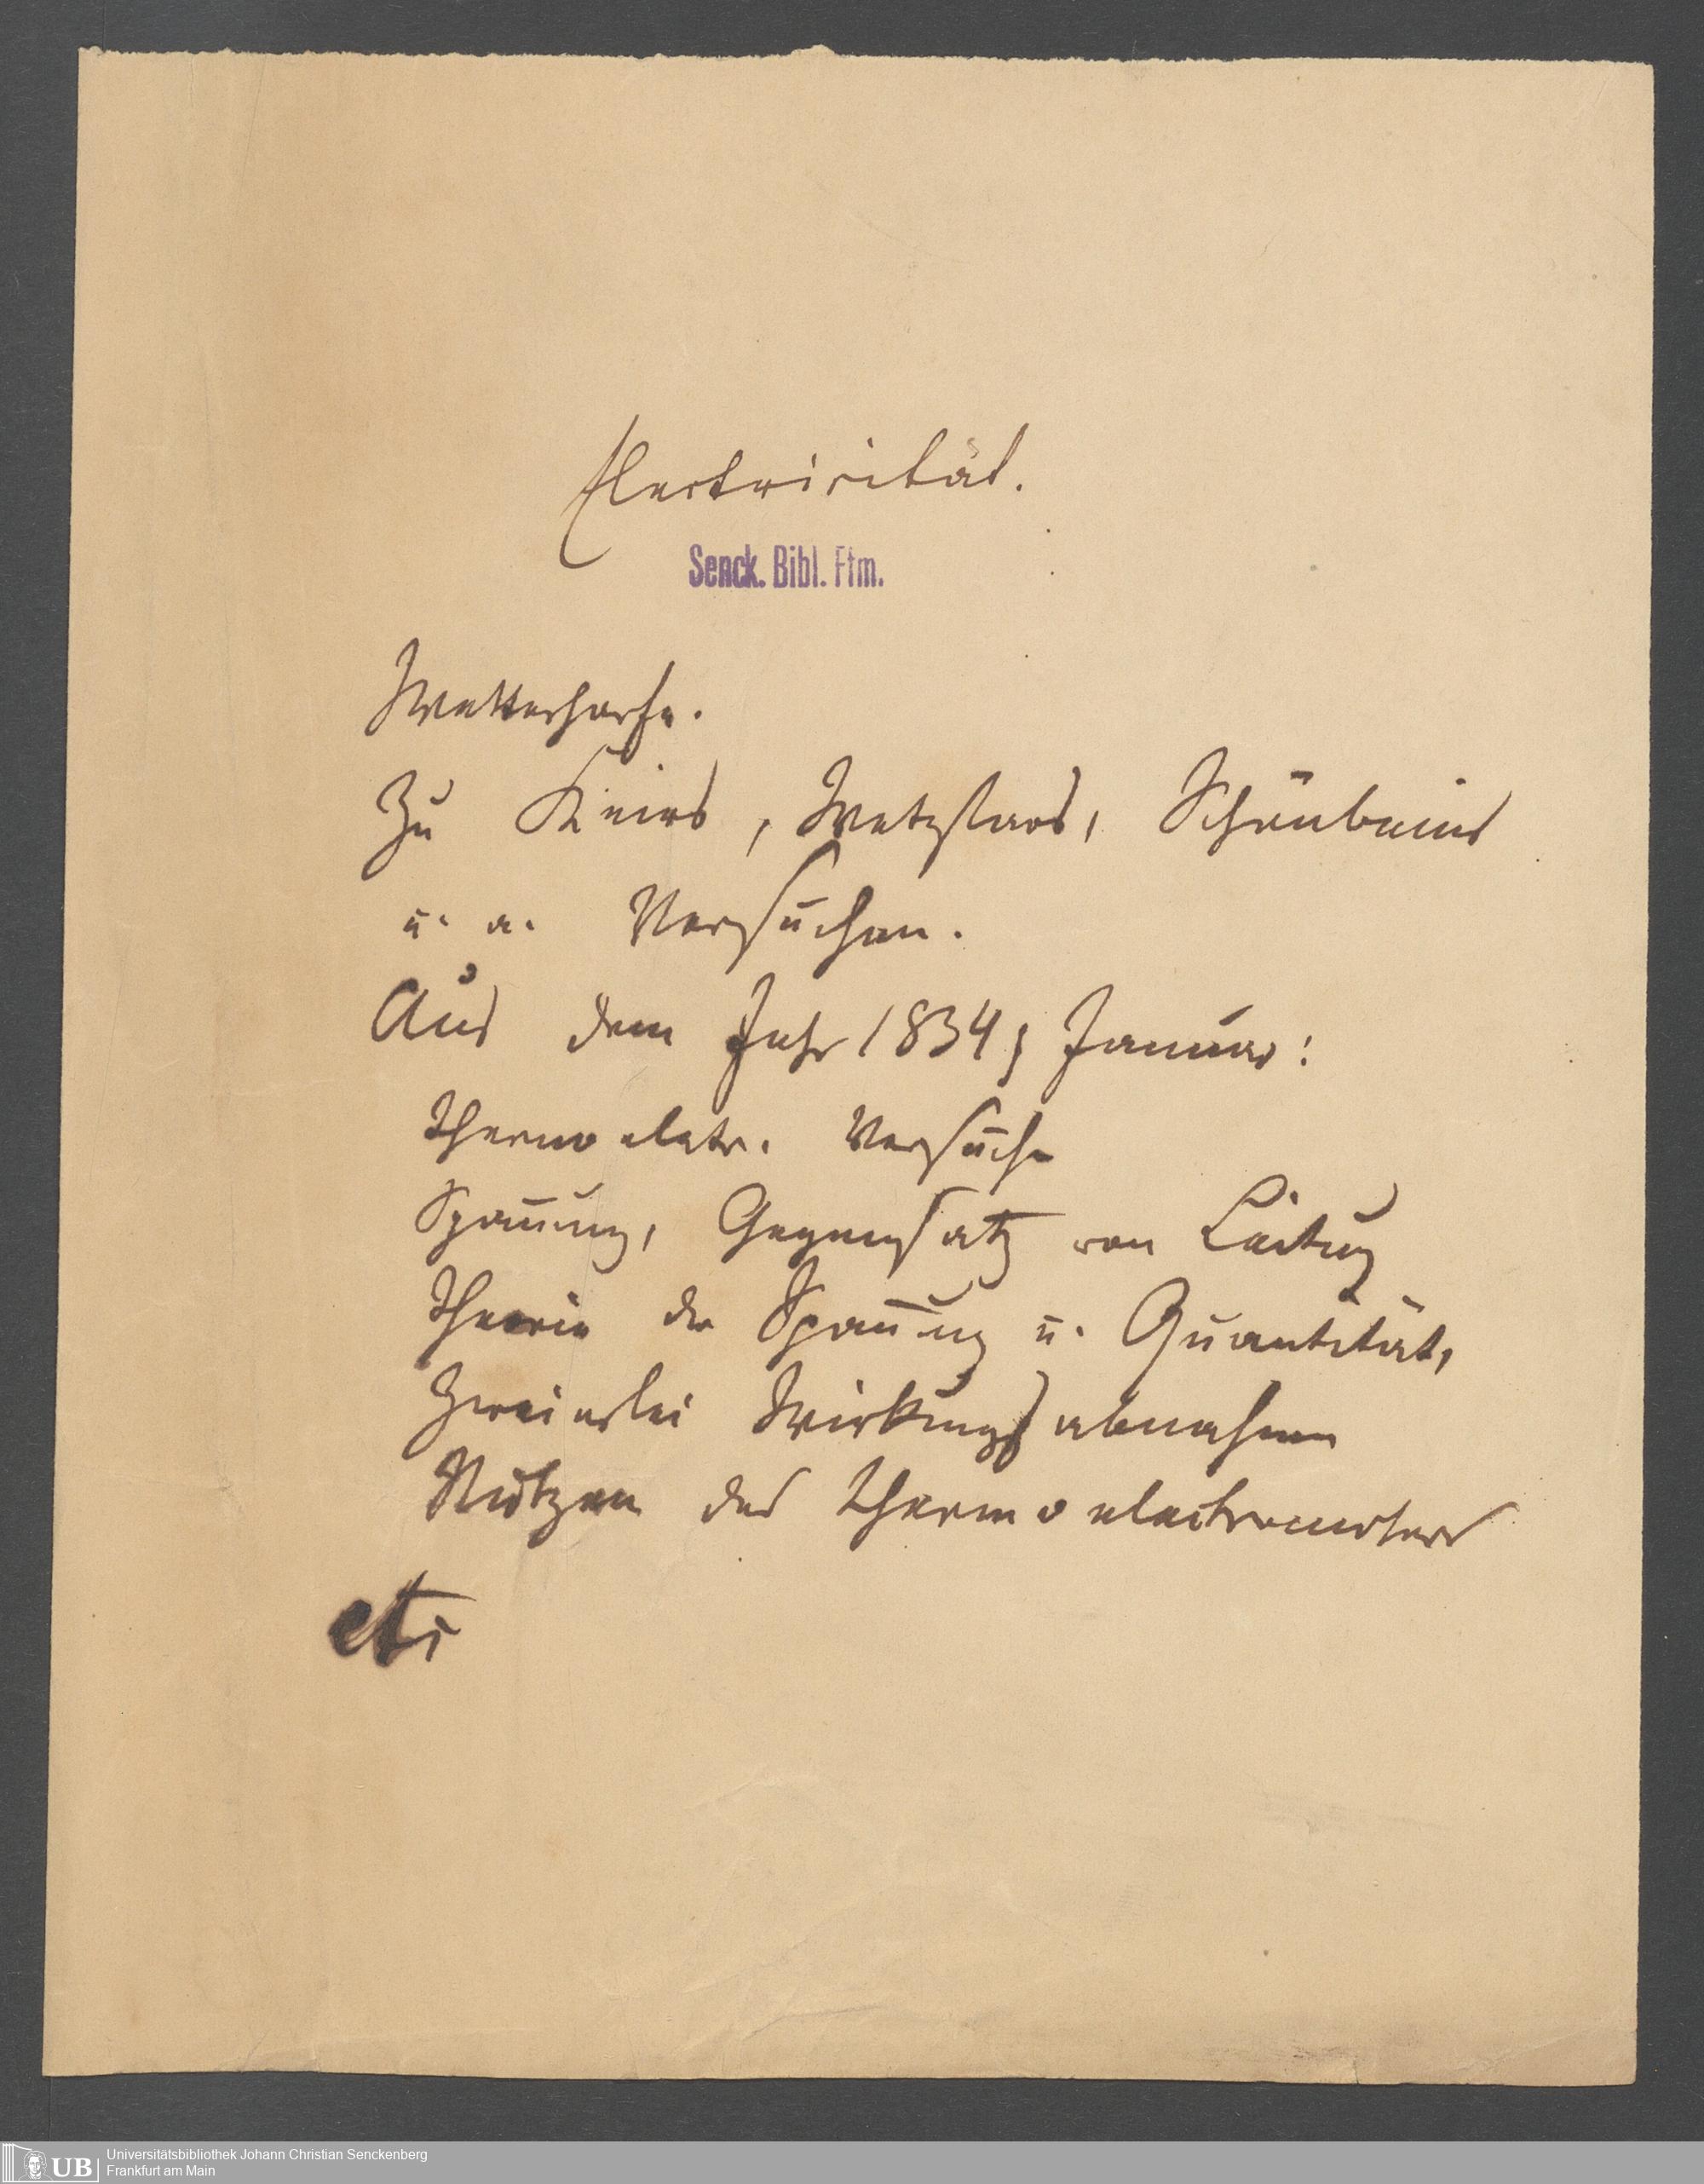 Electricität.
Senck. Bibl. Ffm.
Wetterharfe.
Zu Keirs, Wetzlars, Schönbeins
u. a. Versuchen.
Aus dem Jahr 1834, Januar:
thermoelctr. Versuche
Spannung, Gegensatz von Leitung
Theorie der Spannung u. Quantität,
Zweierlei Wirkungsabnahmen
Nutzen des Thermoelectrometers
etc
UB
Universitätsbibliothek Johann Christian Senckenberg
Frankfurt am Main